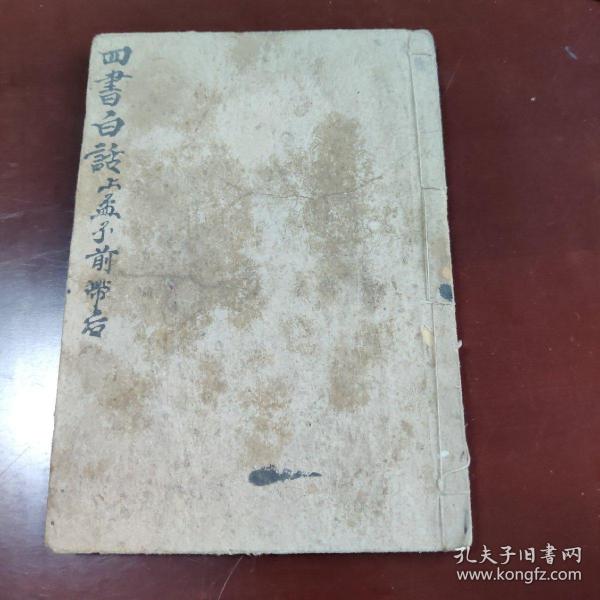 四書白話上孟子前帶后
孔夫子旧書网
www.kongfz.com